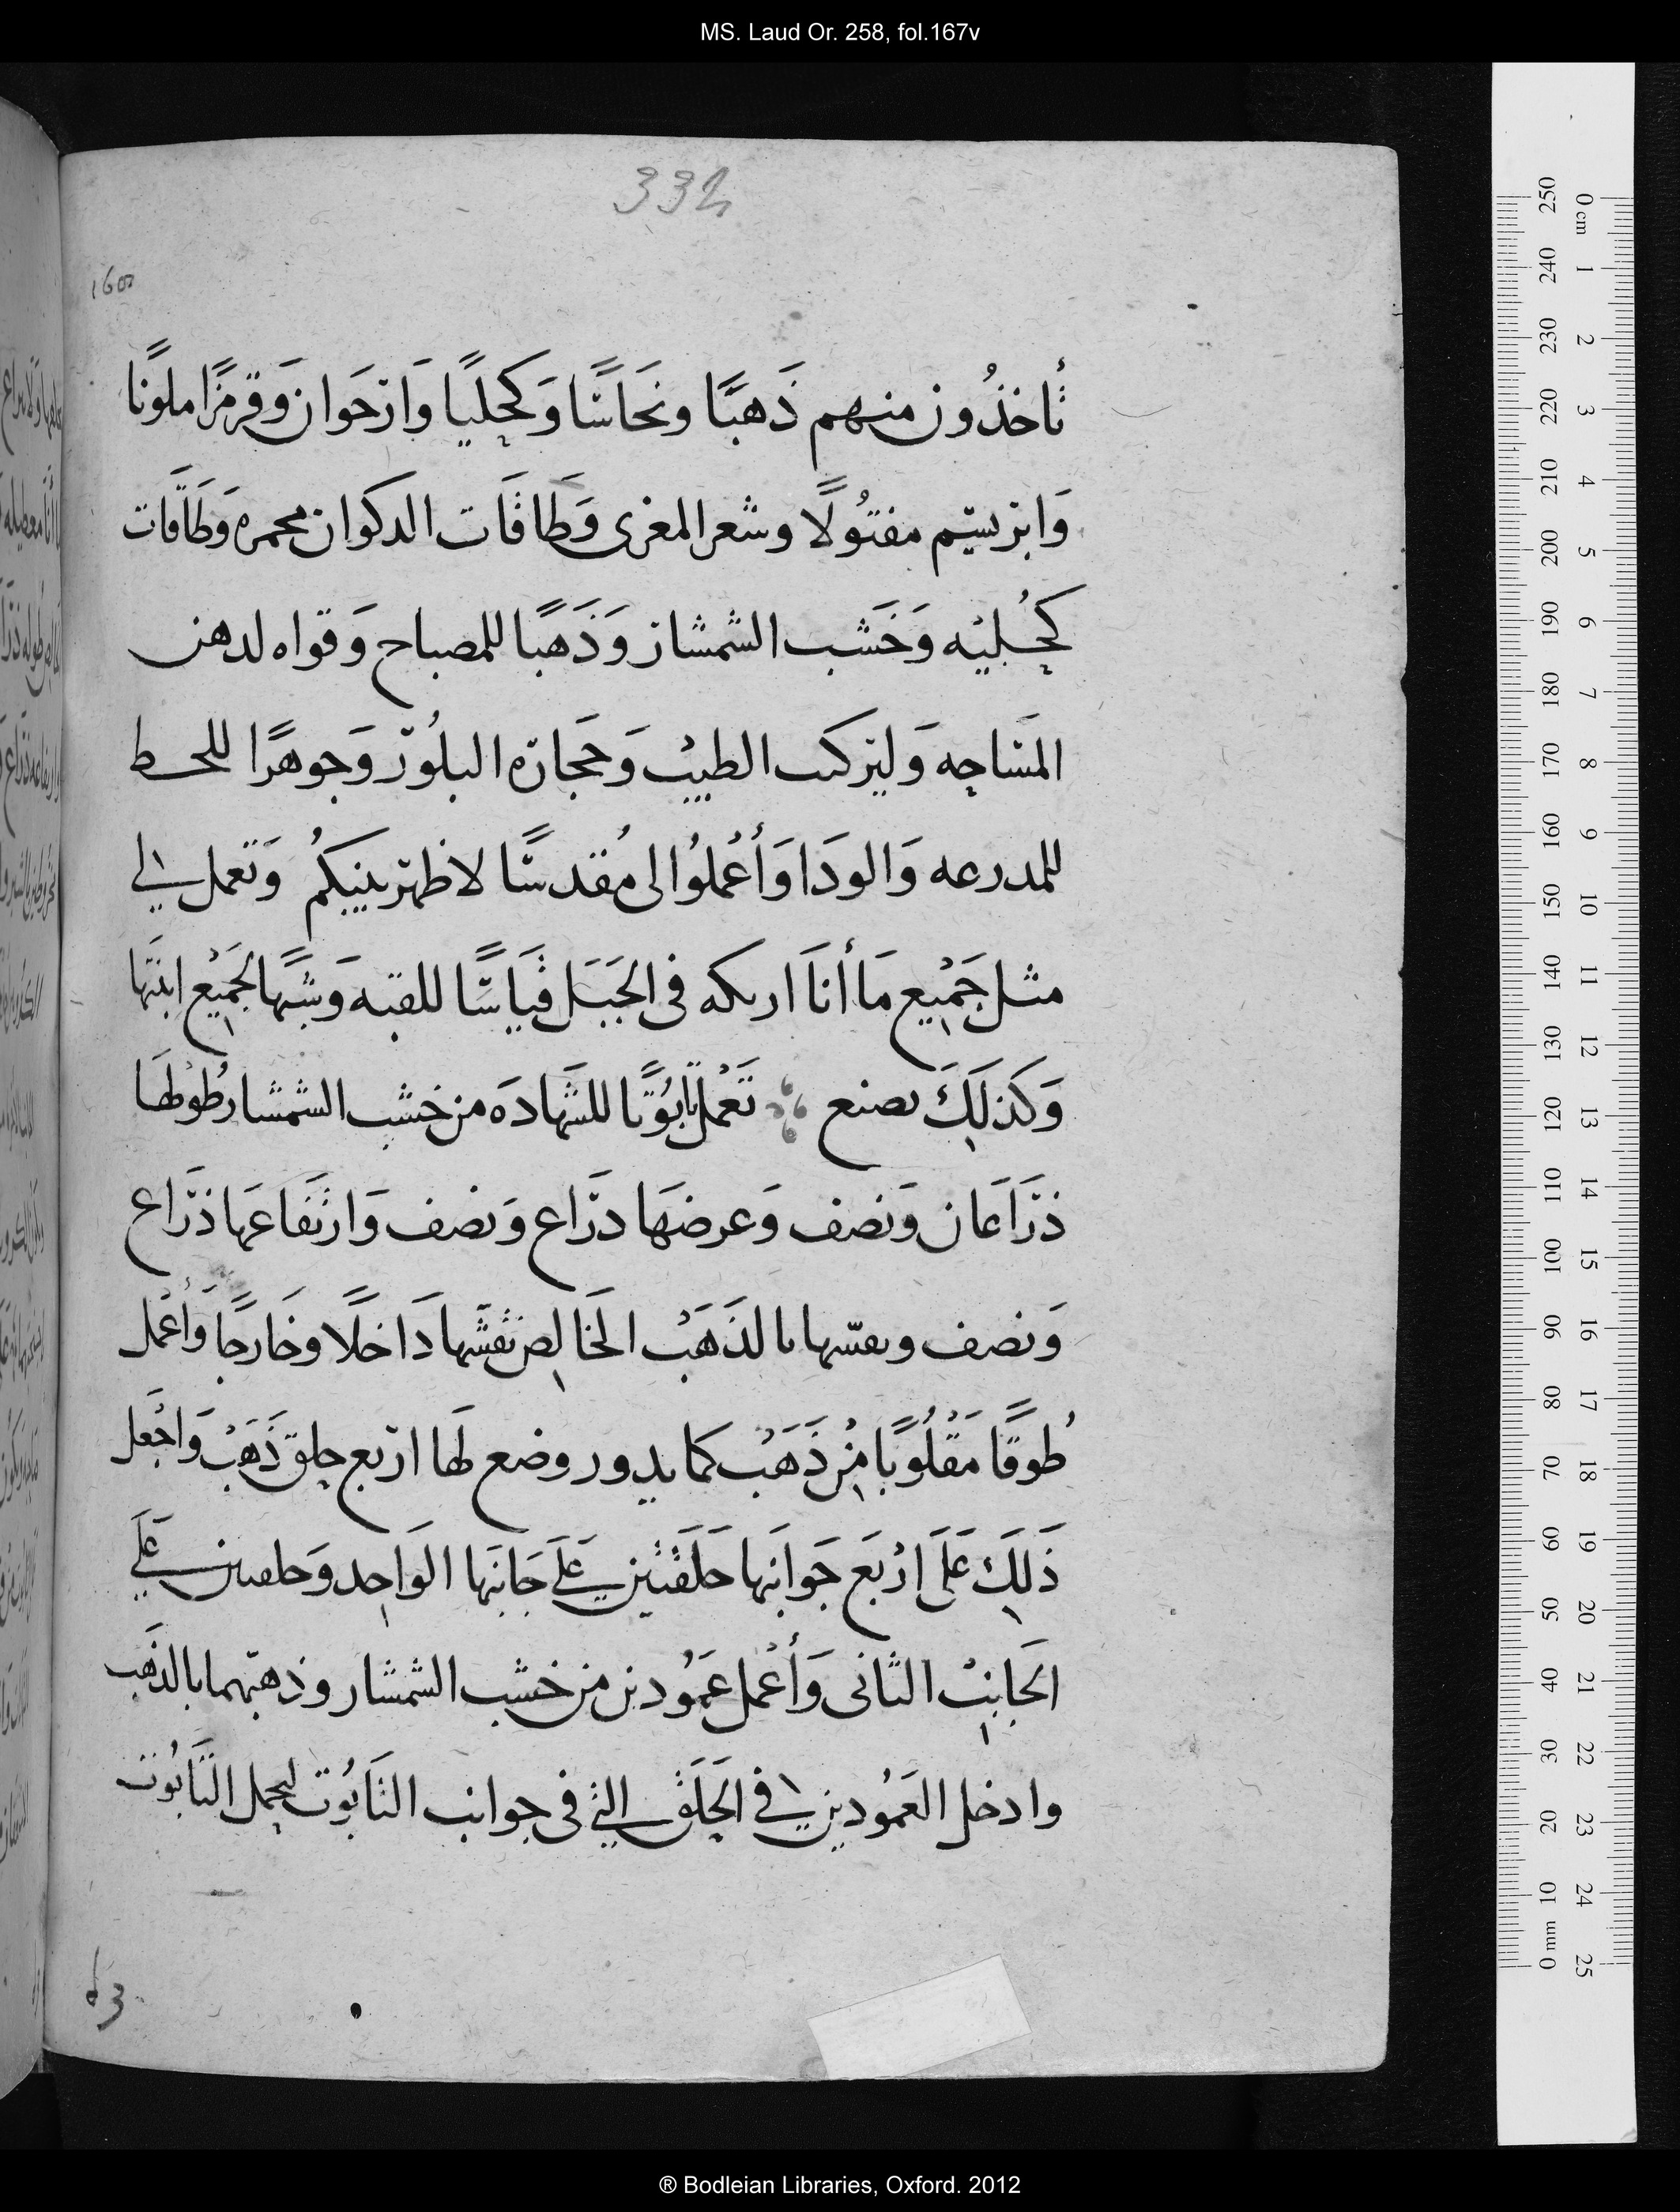 MS. Laud Or. 258, fol.167v
332
تأخذُون منهم ذَهبًا ونحَاسًا وَكحليًا وَارجَوان وَقرمزًا ملونًا
وَابريسَيم مفتُولًا وشعر المغرى وَطَاقَات الدكوان محمره وَطَاقَات
كحُليَه وَخَشب الشمشار وَذَهبًا للمصباح وَقواه لدهن
المسَاحه وَلتركىب الطيبْ وَحجَارَه البلُور وَجوهرًا للحىط
للمدرعه وَالودَا وَأعْملُوا لى مُقدسًا لاظهر بينَكمُ وَتعمل لي
مثل جَميْع مَا أنَا ارىكه فى الجَبَل قيَاسًا للقبه وَشبَهًا لجَميْع ابنَتها
وَكذلَكَ ىصنع تَعْمل تابُوتًا للشَهادَه من خشب الشمشار طُولهَا
ذرَاعَان وَنصف وَعرضهَا دَراع وَنصف وَارتَفاعهَا ذَراع
وَنصف وىعسّها ىالذَهَبْ الخَالِص تغشَها دَاخلًا وخَارجًا وَأعْمل
طُوقًا مَقْلُوبًا مِنْ ذَهَبْ كما يدور وضع لهَا اربع حلق ذَهَبْ وَاجْعل
ذَلِكَ عَلَى ارْبَع جَوانبَها حَلَقْتَيْن عَلَى جَانبَها الوَاحِد وَحلقىىن عَلَى
الجَانِبْ الثانى وَأعْمل عَمُودىن من خشب الشمشار وذهبّهما بالذَهب
وادخل العَمُودين فى الحَلَق التى فى جوانب التَابُوت ليحمل التَابُوت
0 cm 1 2 3 4 5 6 7 8 9 10 11 12 13 14 15 16 17 18 19 20 21 22 23 24 25
250 240 230 220 210 200 190 180 170 160 150 140 130 120 110 100 90 80 70 60 50 40 30 20 10 0 mm
® Bodleian Libraries, Oxford. 2012